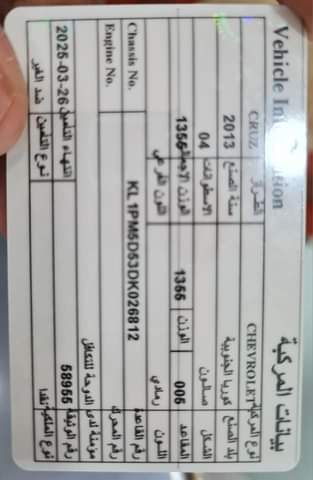 Vehicle Information بيانات المركبة
CRUZ الطراز CHEVROLET نوع المركبة
2013 سنة الصنع كوريا الجنوبية بلد الصنع
04 الاسطوانات صالون الشكل
1355 الوزن الاجمالي 1355 الوزن 005 المقاعد
اللون الفرعي رمادي اللون
Chassis No. KL1PM5D53DK026812 رقم القاعدة
Engine No. رقم المحرك
مؤمنة لدى الدوحة للتكافل
2025-03-26 انتهاء التأمين 58955 رقم الوثيقة
ضد الغير نوع التأمين نوع الملكية نقدا